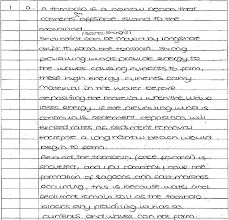 1 a. A tombolo is a narrow beach that
connects offshore island to the
mainland
(sand, shingle)
Sediment can be moved by longshore
drift to form the tombolo. Strong
prevailing winds provide energy to
the waves causing currents to form
these high energy currents carry
material in the water before
depositing the material when the wave
loses energy. If the prevailing wind is
continuous sediment deposition will
exceed rates of sediment removal
therefore a long narrow beach would
begin to form.
Around the tombolo (once formed) is
sheltered and you commonly have the
formation of lagoons and salt marshes
occurring, this is because water and
sediment remain still as the tombolo
any prevailing winds so
currents and waves can not form.